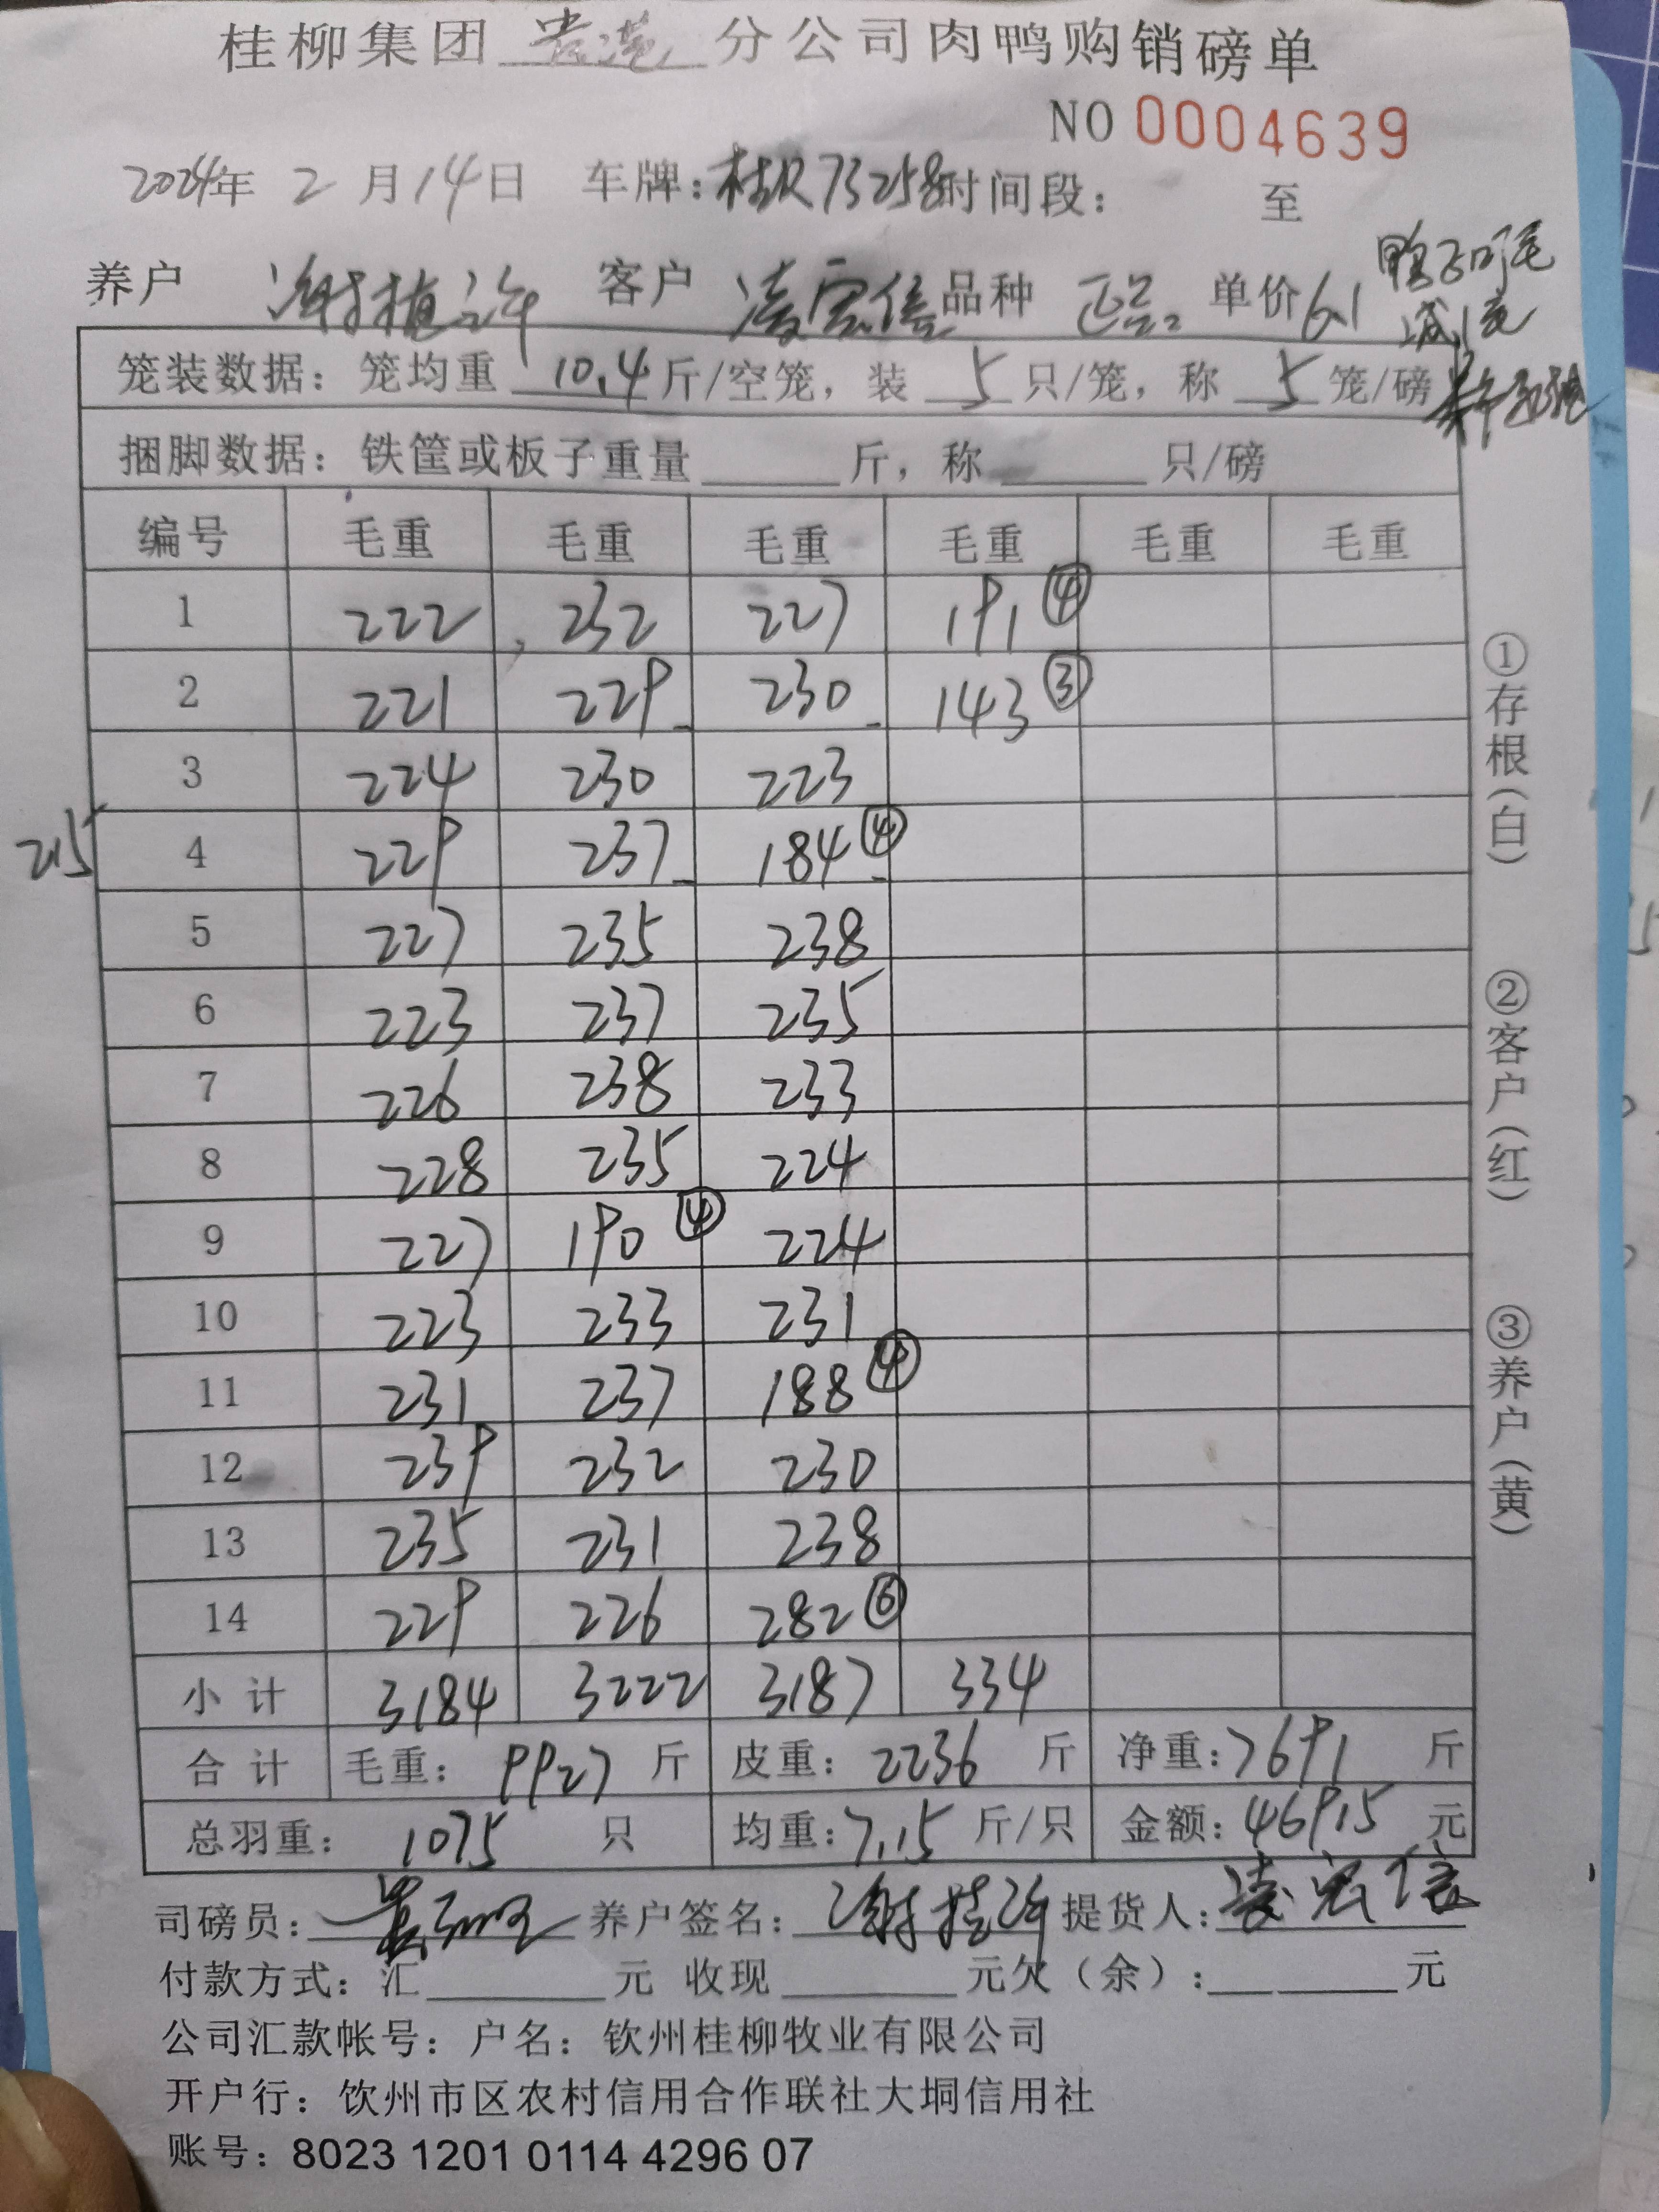 桂柳集团 贵港 分公司肉鸭购销磅单
NO 0004639
2024年 2 月 14 日 车牌: 桂R73258 时间段: 至
养户 谢植许 客户 凌宏信 品种 正品 单价 6.1
笼装数据: 笼均重 10.4 斤/空笼, 装 5 只/笼, 称 5 笼/磅
捆脚数据: 铁筐或板子重量 斤, 称 只/磅
编号 毛重 毛重 毛重 毛重 毛重 毛重
1 222 232 227 191 ④
2 221 229 230 143 ③
3 224 230 223
215 4 229 237 184 ④
5 227 235 238
6 223 237 235
7 226 238 233
8 228 235 224
9 227 190 ④ 224
10 223 233 231
11 231 237 188 ④
12 239 232 230
13 235 231 238
14 229 226 282 ⑥
小计 3184 3222 3187 334
合计 毛重: 9927 斤 皮重: 2236 斤 净重: 7691 斤
总羽重: 1075 只 均重: 7.15 斤/只 金额: 46915 元
①存根(白)
②客户(红)
③养户(黄)
司磅员: 养户签名: 谢植许 提货人: 凌宏信
付款方式: 汇 元 收现 元欠(余): 元
公司汇款帐号: 户名: 钦州桂柳牧业有限公司
开户行: 饮州市区农村信用合作联社大垌信用社
账号: 8023 1201 0114 4296 07